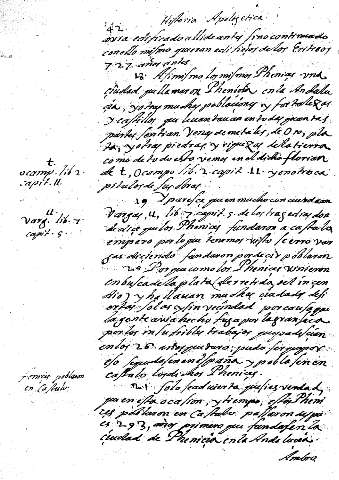 42
Historia Apologetica
avia edificado allidante sino continuado
con ello mismo que ran edificios de los
727. años antes
18 Asimismo los mismos Phenices una
ciudad que llamaron Phenicia en la Andalu
cia, y otras muchas poblaciones y fortalezas
y castillos que levantavan en todas quantas
partes sentian venas de metales, de Oro, pla
ta, y otras piedras, y riquezas de la tierra
como de todo esto vemos en el dicho florian
de t, Ocampo lib. 2. capit. 11. y en otro ca
pitulos de su obras
t
ocamp. lib. 2.
capit. 11.
19 Y aparesce que en mucho con ciudad em
Vargas, u, lib. 7. capit. 5. de los tras
de alce que los Phenices fundaron a castulo
empero por lo que tenemos visto se erro var
gas diciendo fundaron por decir poblaron
u
Varg. lib. 7.
capit. 5.
20 Por que como los Phenices vinieron
en busca de la plata derretida, del incen
dio, y hallavan muchas ciudades de
siertas solas y sin vecindad por causa que
la gente avia hecho fuga por la gran seca
por los insufribles trabajos que padescian
en los 26 años que duro, pudo ser que por
eso se quedasen en España y poblasen en
Castulo los dichos Phenices.
Fenices poblaron
en Castulo
21 Solo se advierta, que si es verdad
que en esta ocasion, y tiempo, estos Pheni
ces poblaron en Castulo passaron despu
es 293, años primero que fundasen la
ciudad de Phenicia en la Andalucia.
Ambro